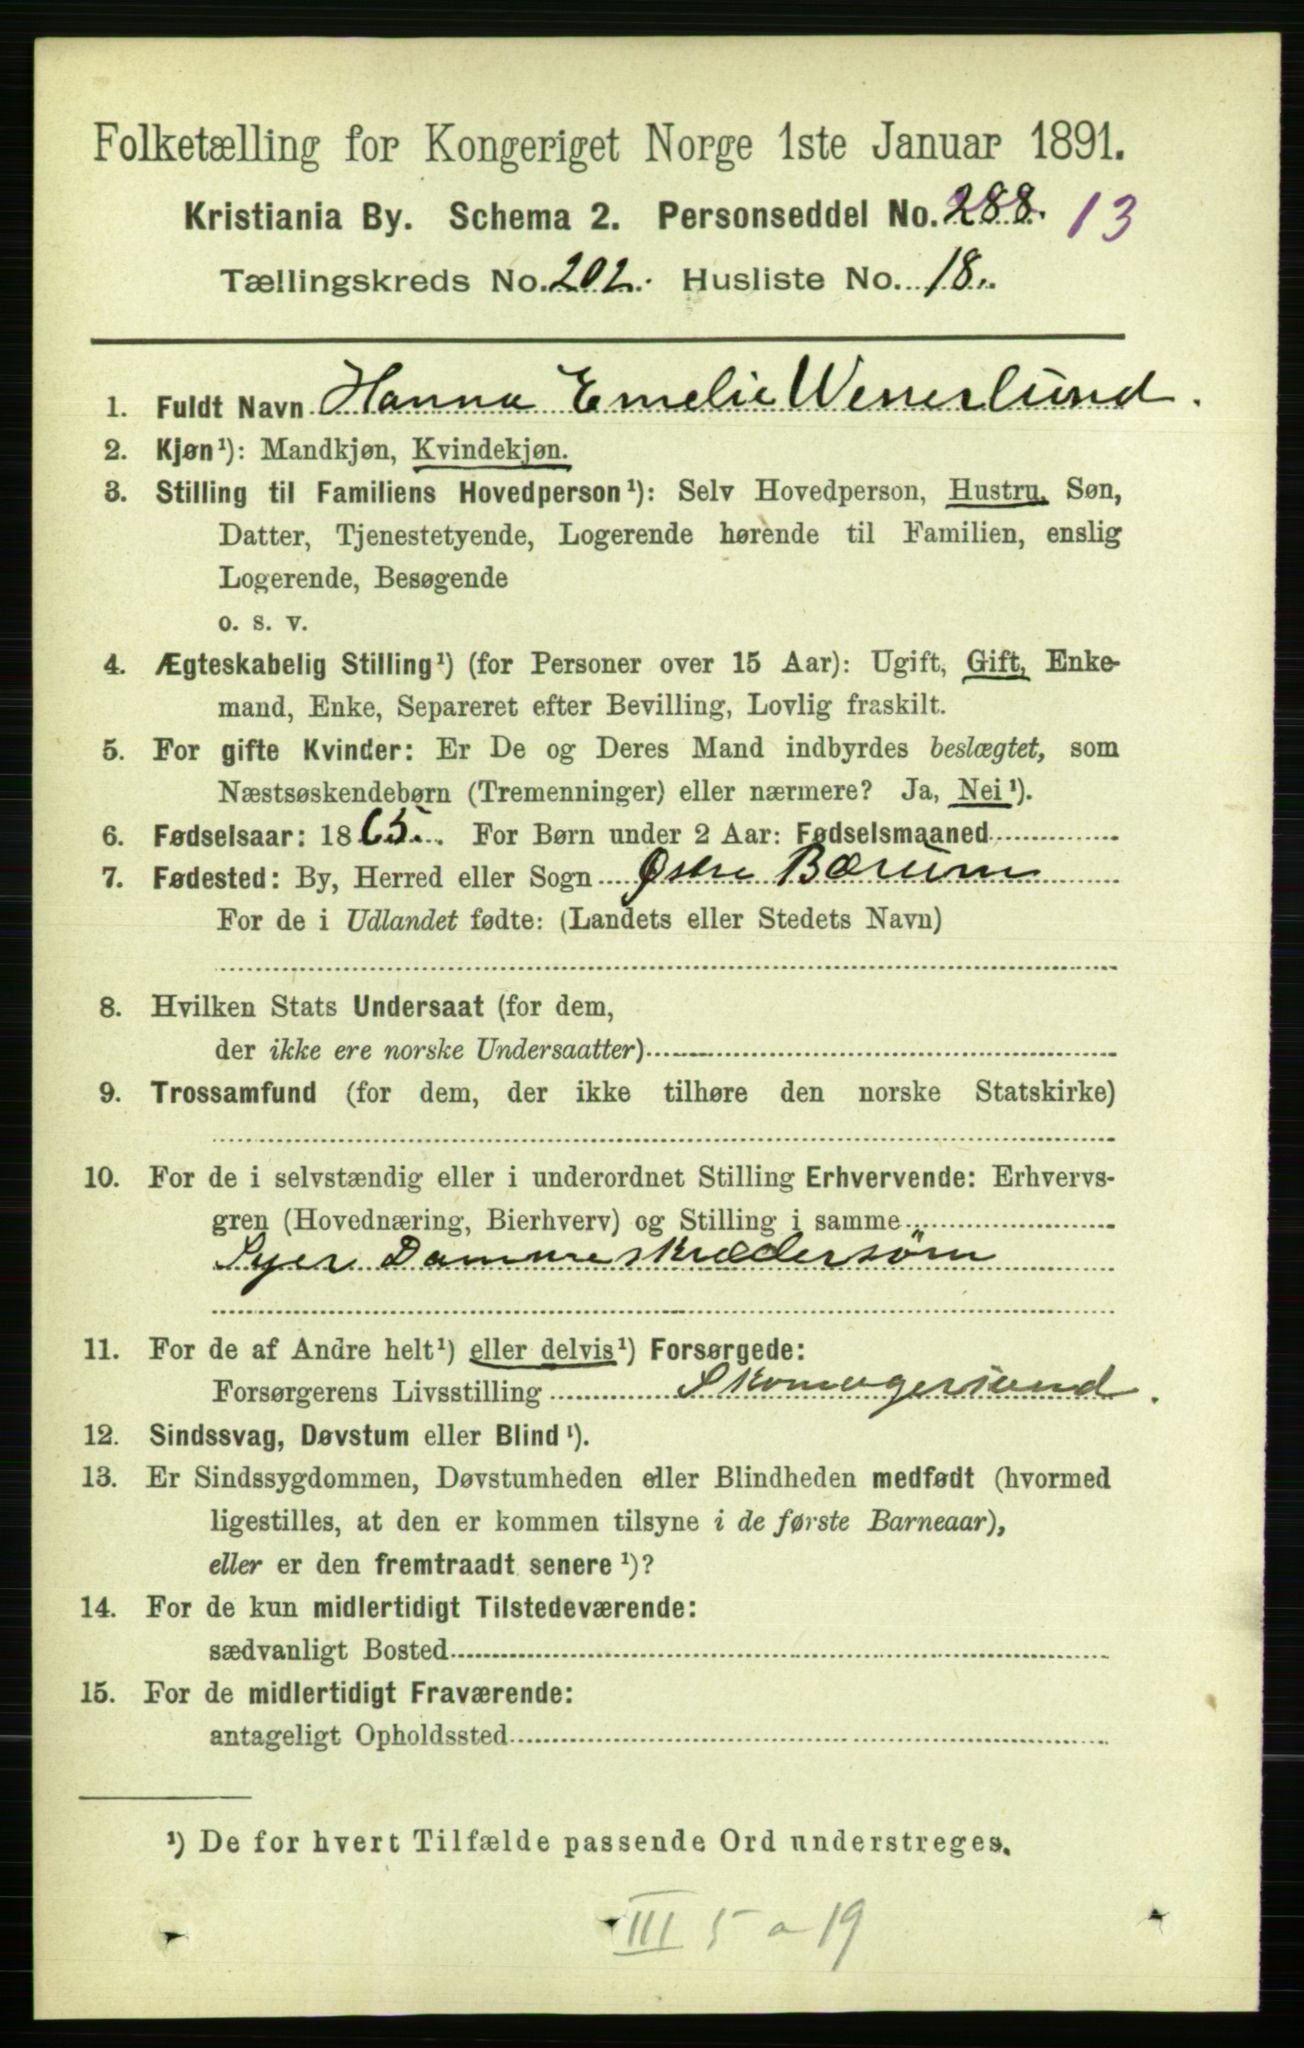 Folketælling for Kongeriget Norge 1ste Januar 1891.
Kristiania By. Schema 2. Personseddel No. 288. 13
Tællingskreds No. 202. Husliste No. 18.
1. Fuldt Navn Hanna Emelie Wennerlund.
2. Kjøn¹): Mandkjøn, Kvindekjøn.
3. Stilling til Familiens Hovedperson¹): Selv Hovedperson, Hustru, Søn,
Datter, Tjenestetyende, Logerende hørende til Familien, enslig
Logerende, Besøgende
o. s. v.
4. Ægteskabelig Stilling¹) (for Personer over 15 Aar): Ugift, Gift, Enke-
mand, Enke, Separeret efter Bevilling, Lovlig fraskilt.
5. For gifte Kvinder: Er De og Deres Mand indbyrdes beslægtet, som
Næstsøskendebørn (Tremenninger) eller nærmere? Ja, Nei¹).
6. Fødselsaar: 1865. For Børn under 2 Aar: Fødselsmaaned
7. Fødested: By, Herred eller Sogn Østre Bærum
For de i Udlandet fødte: (Landets eller Stedets Navn)
8. Hvilken Stats Undersaat (for dem,
der ikke ere norske Undersaatter)
9. Trossamfund (for dem, der ikke tilhøre den norske Statskirke)
10. For de i selvstændig eller i underordnet Stilling Erhvervende: Erhvervs-
gren (Hovednæring, Bierhverv) og Stilling i samme
Syer Dammeskræddersøm
11. For de af Andre helt¹) eller delvis¹) Forsørgede:
Forsørgerens Livsstilling Skomagersvend.
12. Sindssvag, Døvstum eller Blind¹).
13. Er Sindssygdommen, Døvstumheden eller Blindheden medfødt (hvormed
ligestilles, at den er kommen tilsyne i de første Barneaar),
eller er den fremtraadt senere¹)?
14. For de kun midlertidigt Tilstedeværende:
sædvanligt Bosted
15. For de midlertidigt Fraværende:
antageligt Opholdssted
¹) De for hvert Tilfælde passende Ord understreges.
III 5 a 19